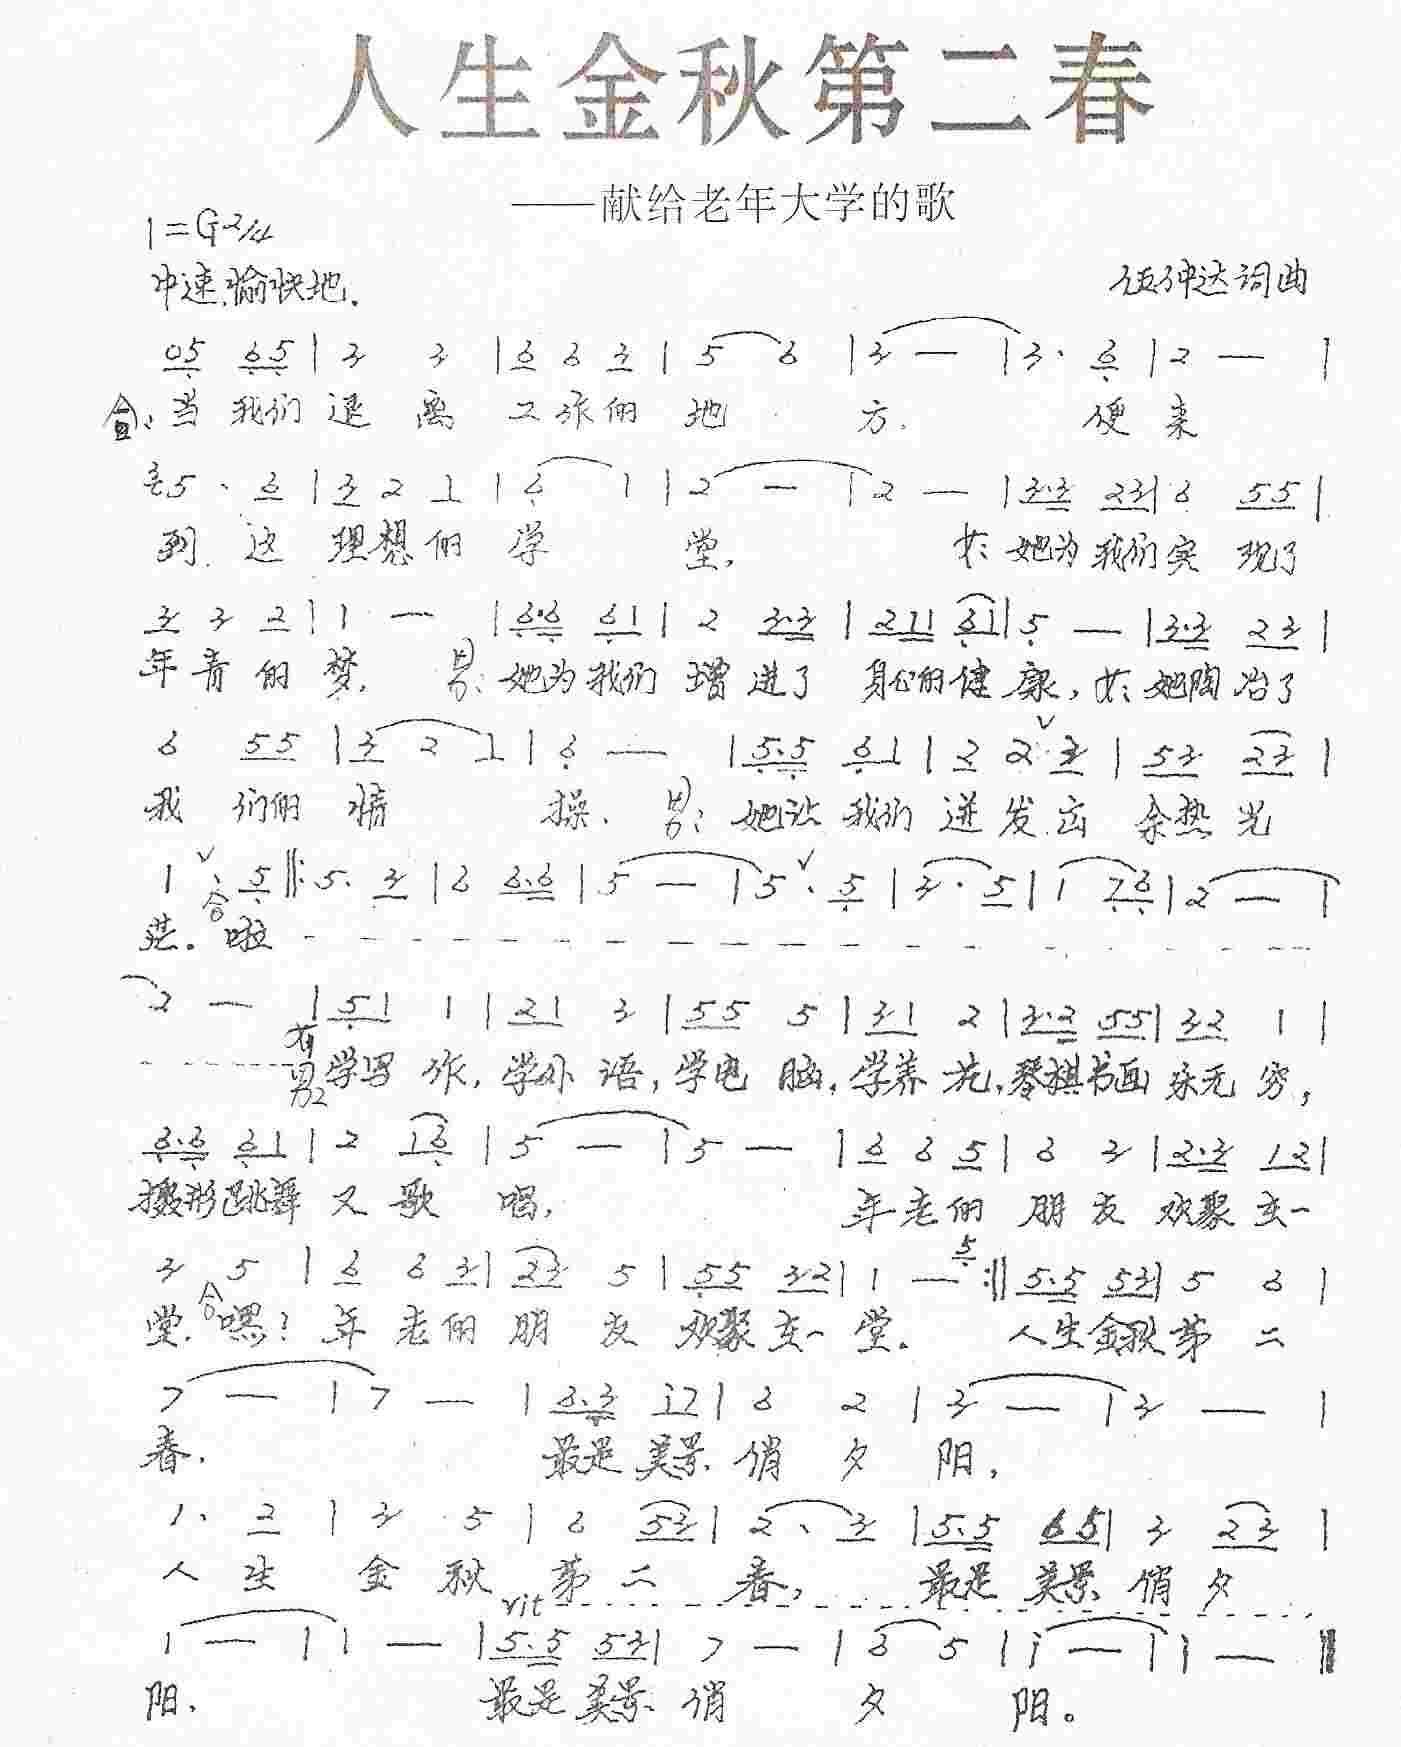 人生金秋第二春
——献给老年大学的歌
1=G2/4
中速.愉快地.
伍钟达词曲
05 65 | 3 3 | 6 6 3 | 5 6 | 3 — | 3· 6 | 2 — |
合: 当 我们 退 离 工作的 地 方. 便 来
35· 6 | 3 2 1 | 6 1 | 2 — | 2 — | 3·3 23 | 6 55 |
到 这 理想的 学 堂, 女: 她为 我们 实 现了
3 3 2 | 1 — | 6·6 61 | 2 3·3 | 211 61 | 5 — | 3·3 23 |
年青的 梦, 男: 她为 我们 增 进了 身心的 健 康, 女: 她陶 冶了
6 55 | 3 2 1 | 6 — | 5·5 61 | 2 2 ∨ 3 | 53 23 |
我 们的 情 操. 男: 她让 我们 迸 发 出 余热 光
1 ∨· 5 ‖: 5· 3 | 6 6·6 | 5 — | 5 ∨· 5 | 3· 5 | 1 76 | 2 — |
合
芒。啦 - - - - - - - - - - - - - - - -
2 — | 51 1 | 21 3 | 55 5 | 31 2 | 3·2 55 | 32 1 |
- - - - - 女男2 学写 作, 学外 语, 学电 脑, 学养 花, 琴棋书画 乐无 穷,
6·6 61 | 2 16 | 5 — | 5 — | 6 6 5 | 6 3 | 2·3 12 |
摄影跳舞 又 歌 唱, 年老的 朋 友 欢聚 在一
3 5 | 6 6 3 | 23 5 | 55 32 | 1 — 5 :‖ 5·5 53 | 5 6 |
堂. 合 嘿! 年 老的 朋 友 欢聚 在一 堂。 人生金秋 第 二
7 — | 7 — | 6·3 i7 | 6 2 | 3 — | 3 — |
春. 最是 美景 俏 夕 阳,
1· 2 | 3 5 | 6 53 | 2· 3 | 5·5 65 | 3 23 |
人 生 金 秋 第 二 春, 最是 美景 俏 夕
rit - - - - - - - - - - - - - - - -
1 — | 1 — | 5·5 53 | 7 — | 6 5 | i — | i — ‖
阳, 最是 美景 俏 夕 阳。